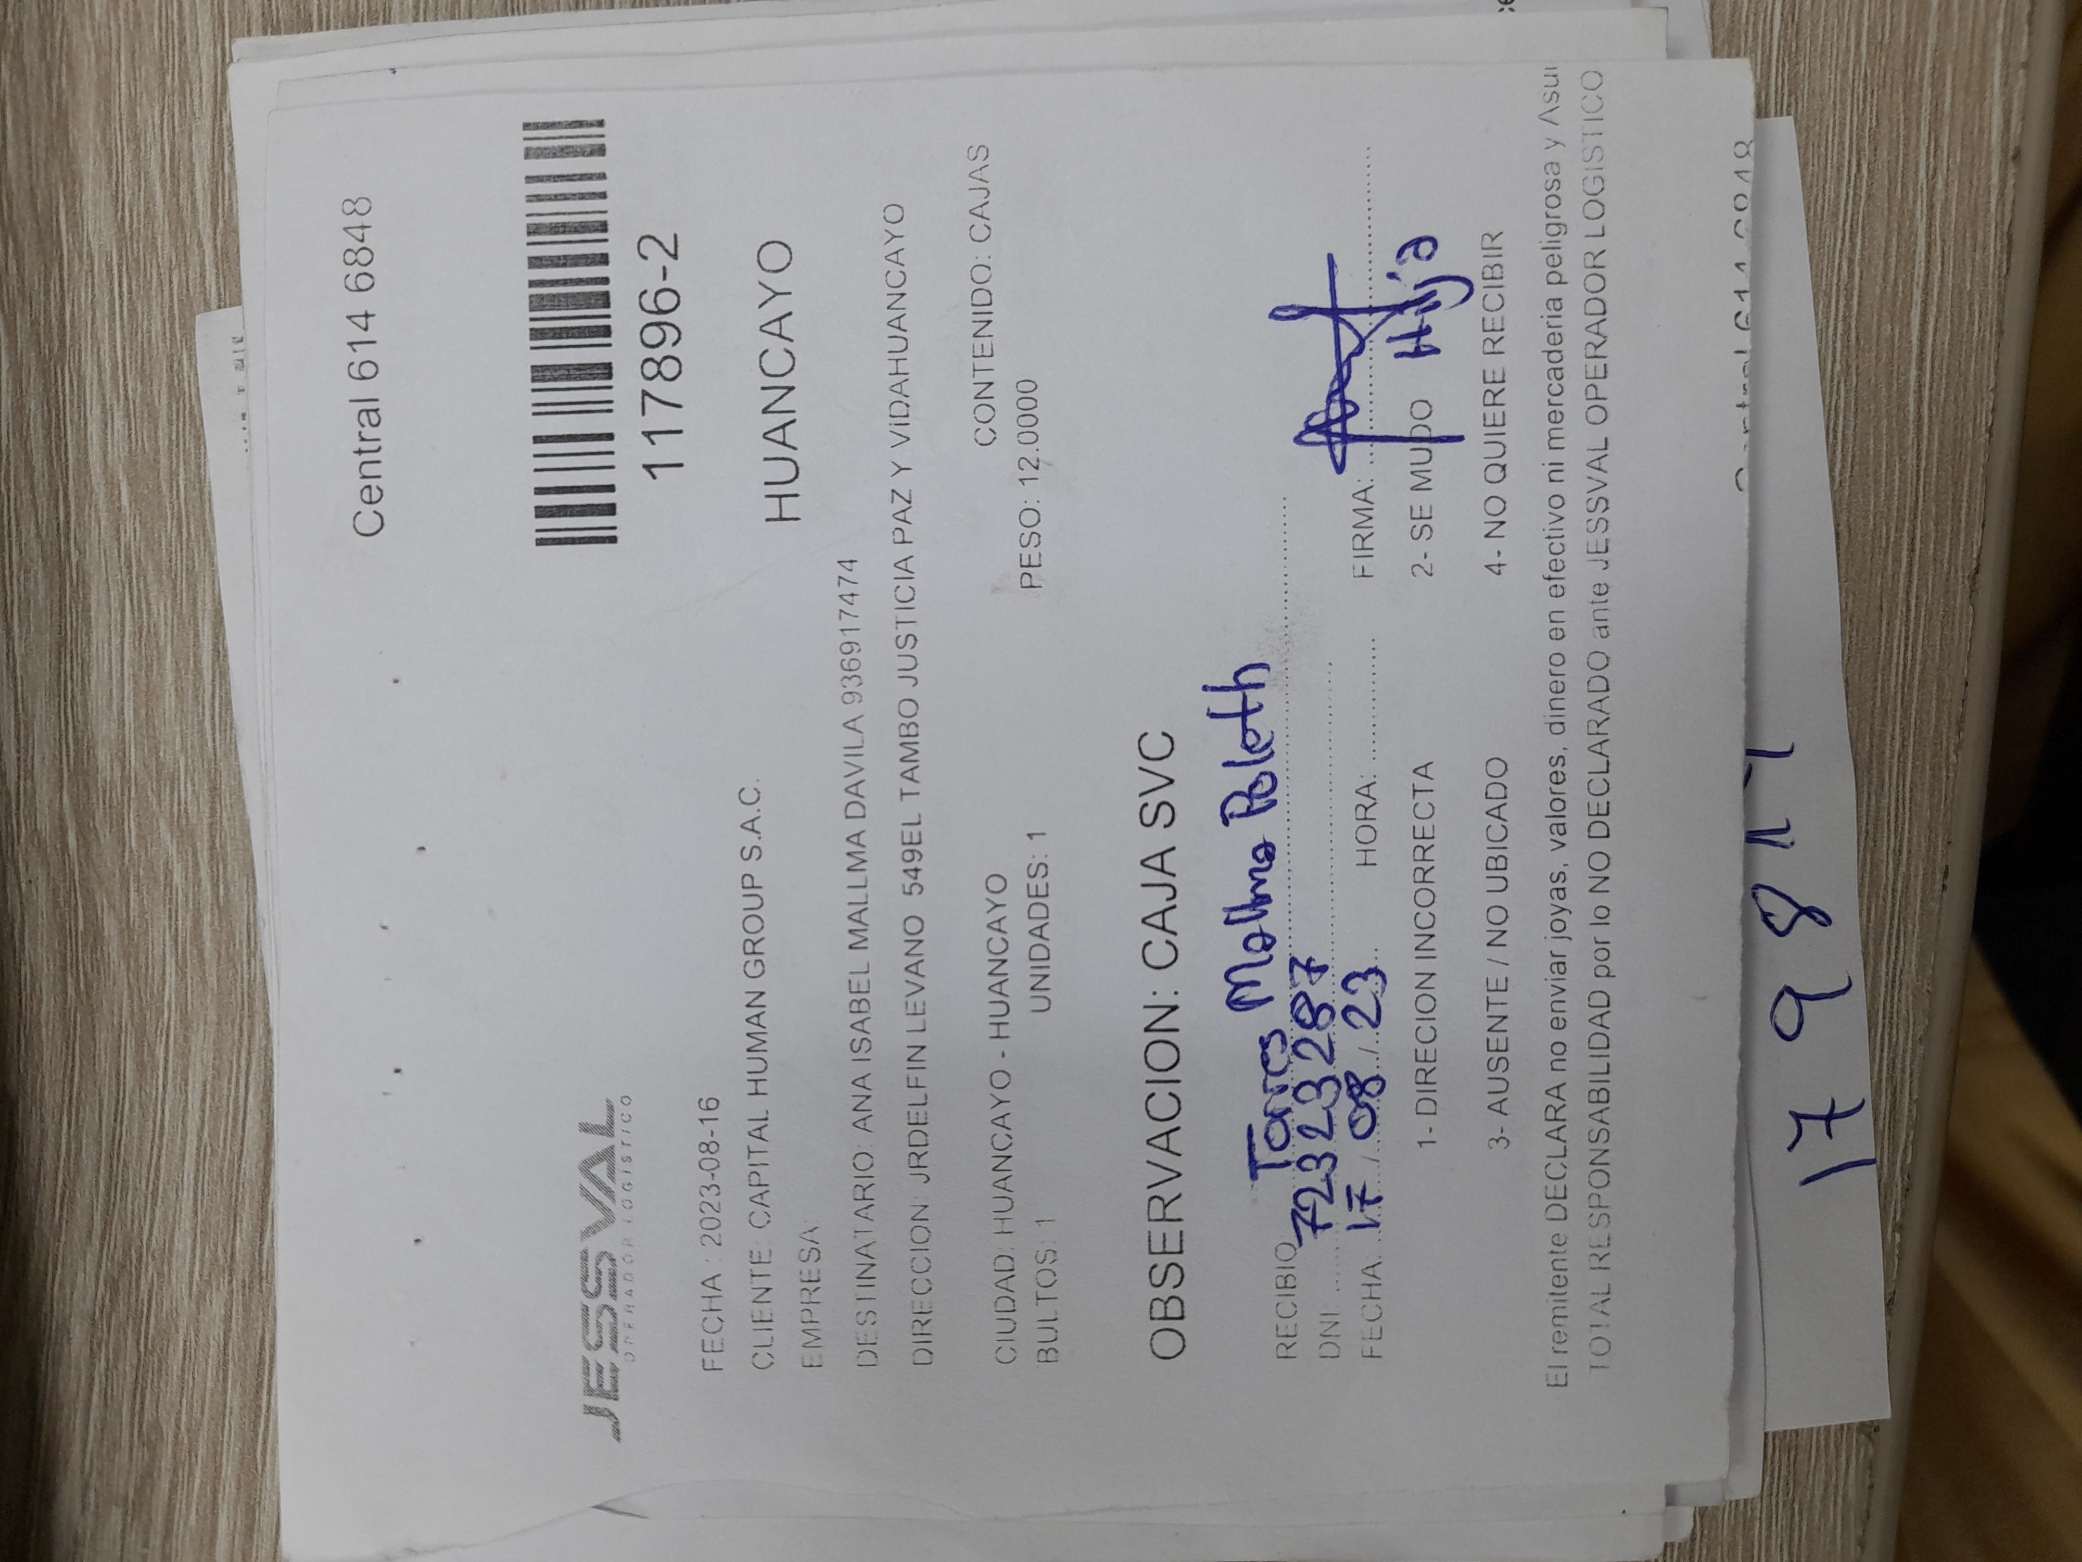 Central 614 6848
JESSVAL
OPERADOR LOGÍSTICO
117896-2
FECHA : 2023-08-16
CLIENTE: CAPITAL HUMAN GROUP S.A.C.
HUANCAYO
EMPRESA:
DESTINATARIO: ANA ISABEL MALLMA DAVILA 936917474
DIRECCION: JRDELFIN LEVANO 549EL TAMBO JUSTICIA PAZ Y VIDAHUANCAYO
CONTENIDO: CAJAS
CIUDAD: HUANCAYO - HUANCAYO
BULTOS: 1 UNIDADES: 1 PESO: 12.0000
OBSERVACION: CAJA SVC
RECIBIO Torres Mallma Poleth
DNI: 72323287
FECHA: 17 / 08 / 23 HORA: FIRMA:
1- DIRECION INCORRECTA 2- SE MUDO Hija
3- AUSENTE / NO UBICADO 4- NO QUIERE RECIBIR
El remitente DECLARA no enviar joyas, valores, dinero en efectivo ni mercaderia peligrosa y
TOTAL RESPONSABILIDAD por lo NO DECLARADO ante JESSVAL OPERADOR LOGISTICO
Central 614 6848
1798